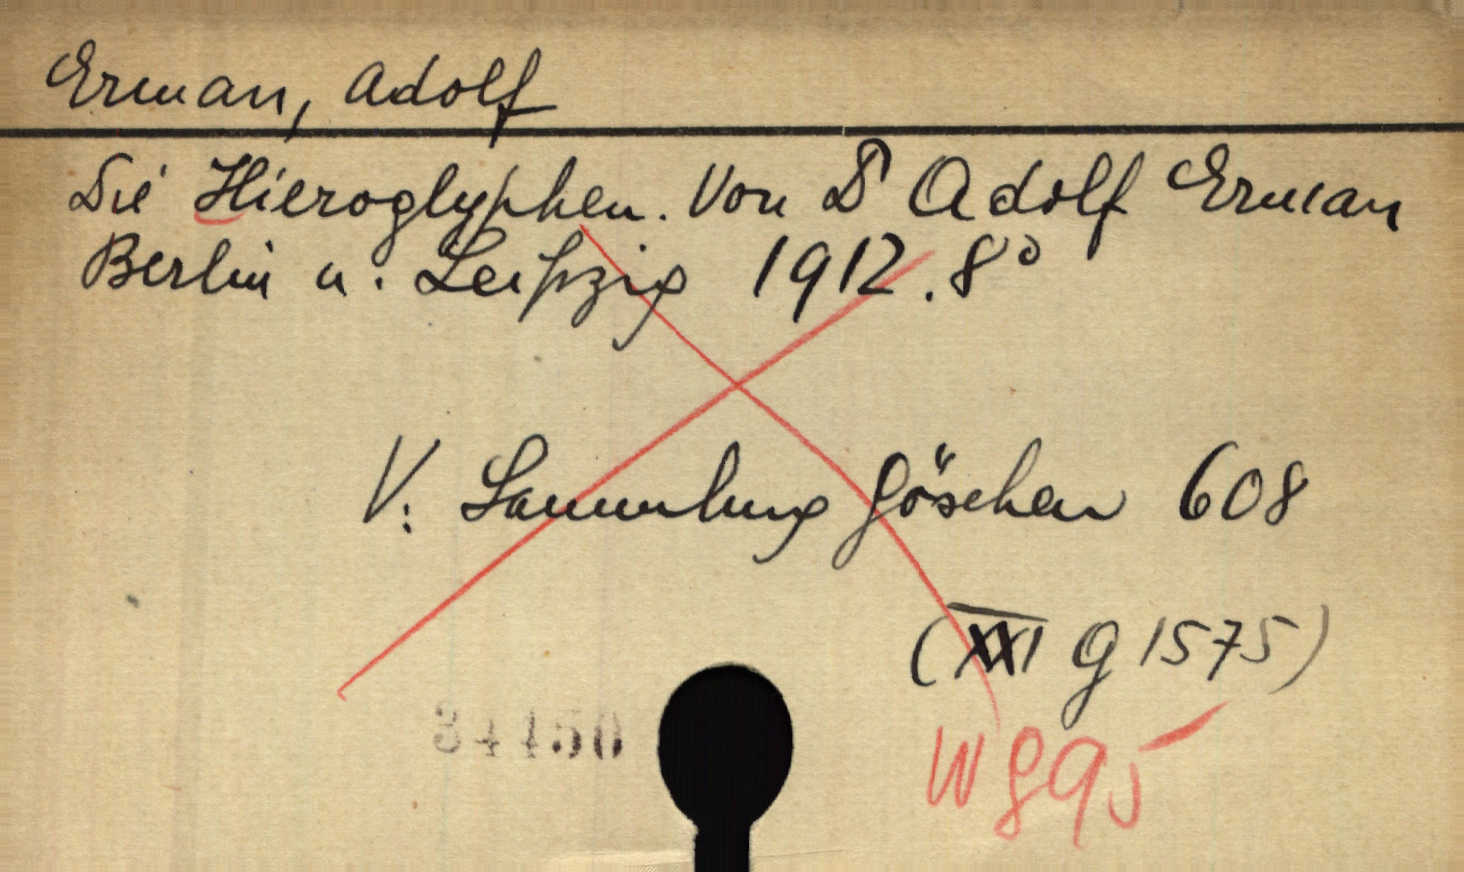 Erman, Adolf
Die Hieroglyphen. Von Dr Adolf Erman
Berlin u. Leipzig 1912. 8°
V: Sammlung Göschen 608
(XXI g 1575)
34450
W 895